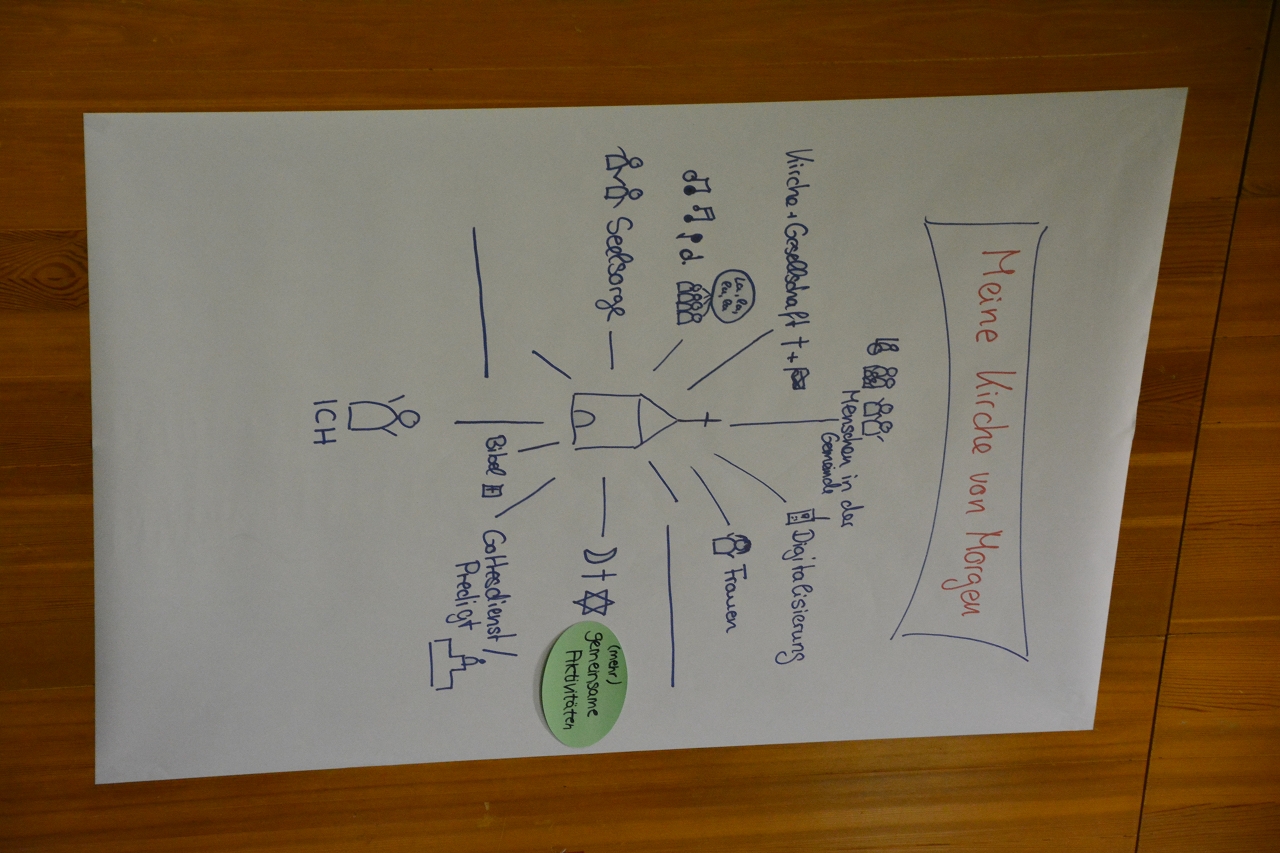 Meine Kirche von Morgen
Menschen in der
Gemeinde
Kirche + Gesellschaft
Digitalisierung
Frauen
La, La,
Seelsorge
(mehr)
gemeinsame
Aktivitäten
Bibel
Gottesdienst /
Predigt
ICH